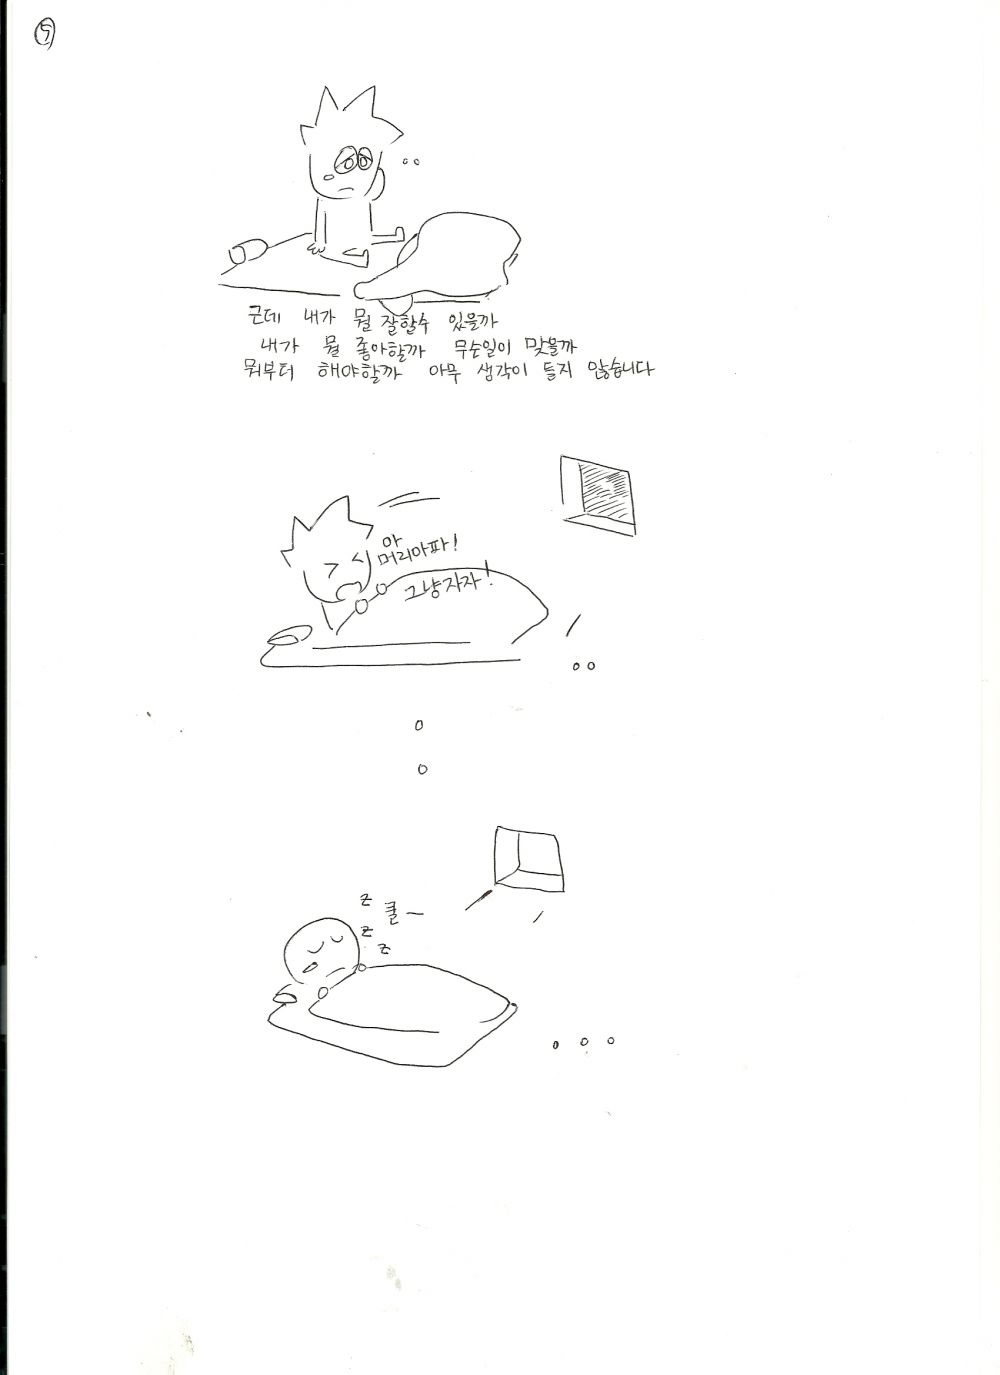 ⑤
근데 내가 뭘 잘할수 있을까
내가 뭘 좋아할까 무슨일이 맞을까
뭐부터 해야할까 아무 생각이 들지 않습니다
아
머리아파!
그냥자자!
z
쿨ー
z
z